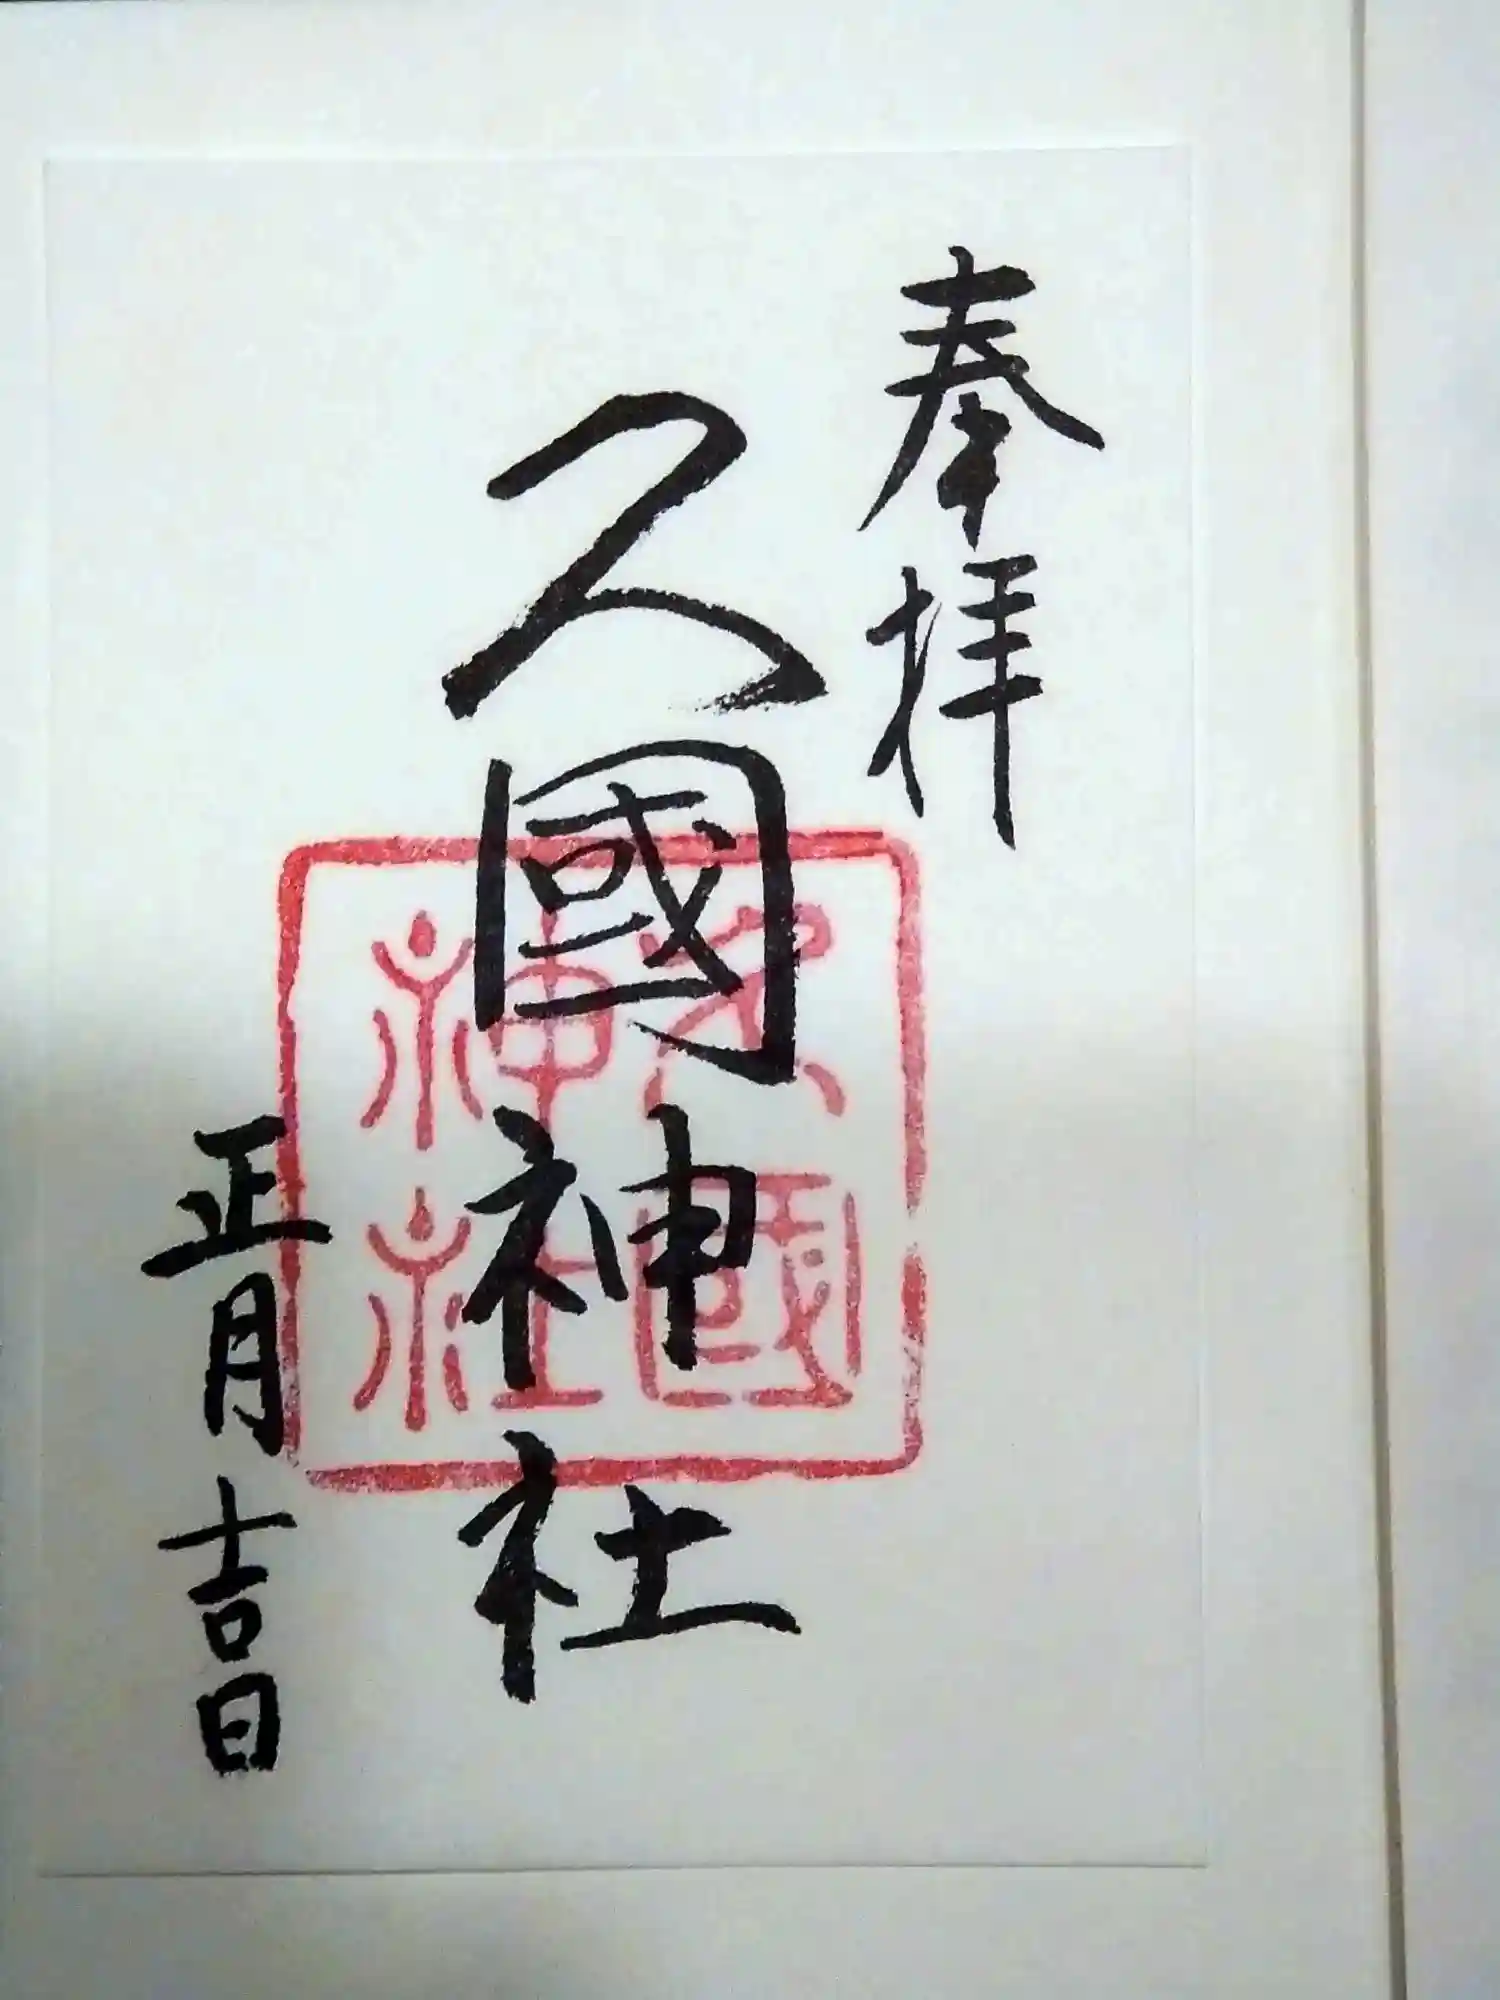 奉拝
久國神社
久國神社
正月吉日